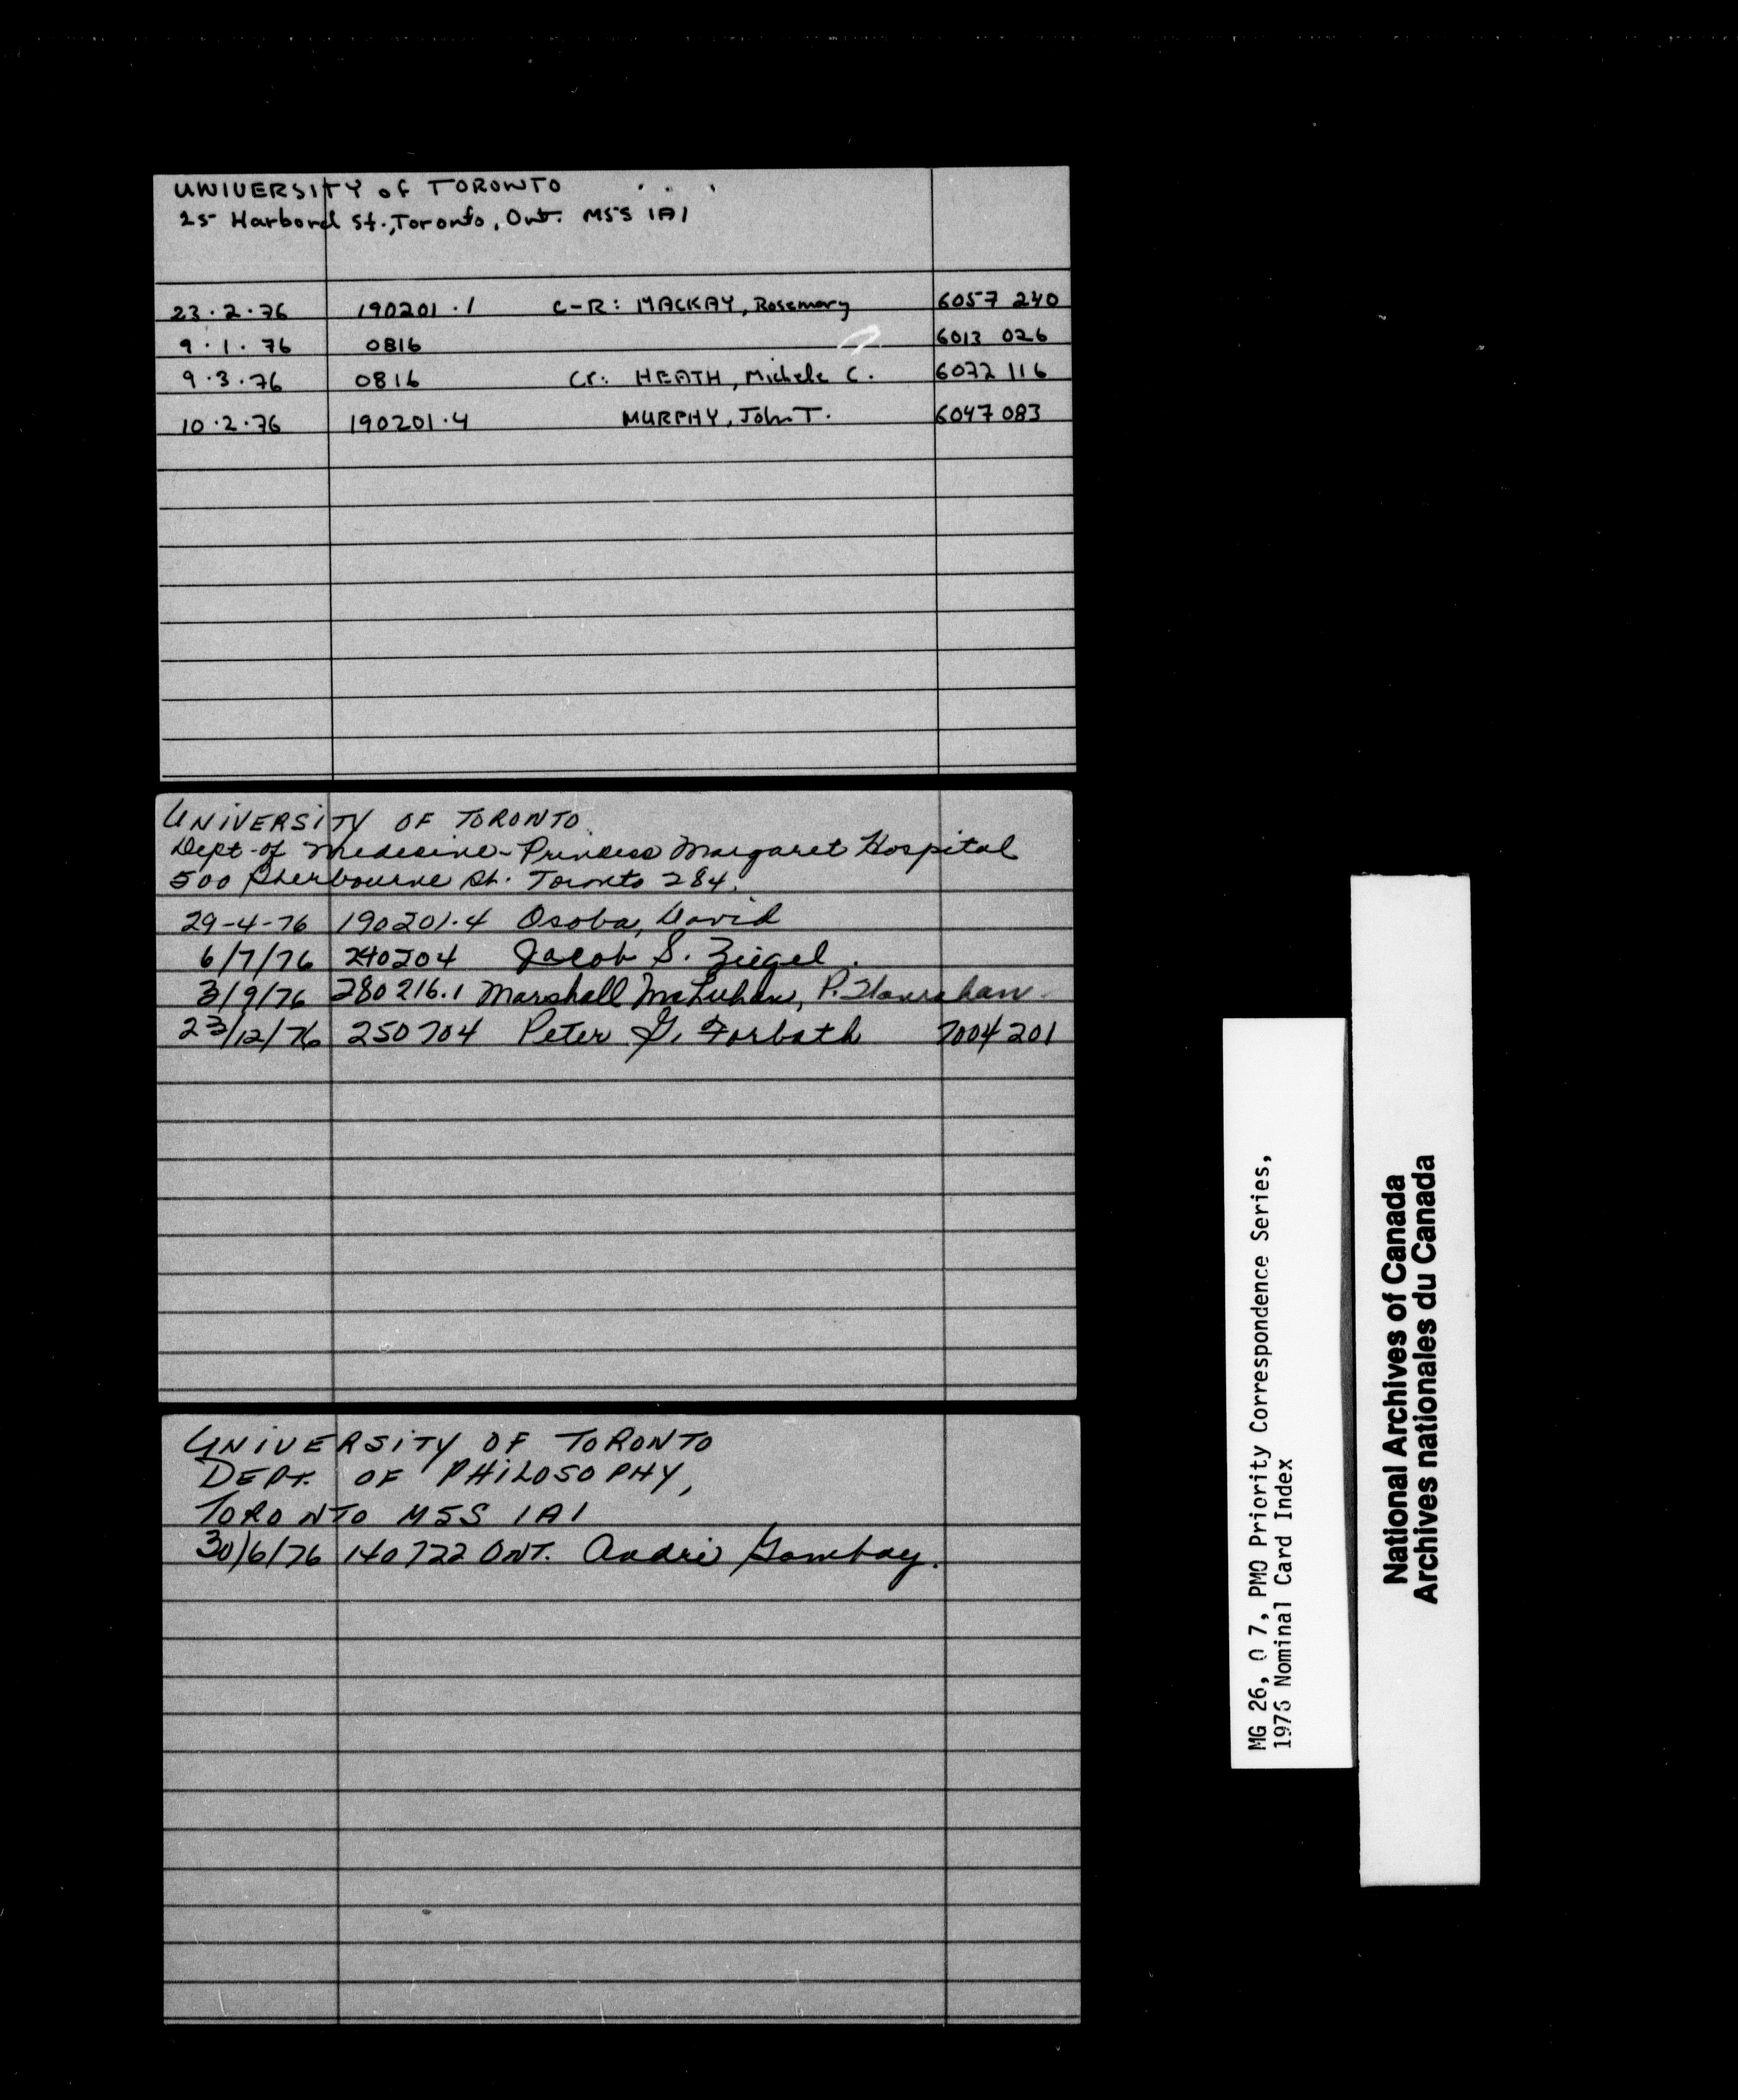 UNIVERSITY of TORONTO . . .
25 Harbord St., Toronto, Ont. M5S 1A1
23.2.76 190201.1 C-R: MACKAY, Rosemary 6057 240
9.1.76 0816 6013 026
9.3.76 0816 Cr: HEATH, Michele C. 6072 116
10.2.76 190201.4 MURPHY, John T. 6047 083
UNIVERSITY OF TORONTO
Dept-of Medecine-Princess Margaret Hospital
500 Sherbourne St. Toronto 284.
29-4-76 190201.4 Osoba, David
6/7/76 240204 Jacob S. Ziegel.
3/9/76 280216.1 Marshall McLuhan, P.
23/12/76 250704 Peter G. Forbath 7004 201
UNIVERSITY OF TORONTO
DEPT. OF PHILOSOPHY,
TORONTO M5S 1A1
30/6/76 140722 ONT. André Gombay.
MG 26, O 7, PMO Priority Correspondence Series,
1976 Nominal Card Index
National Archives of Canada
Archives nationales du Canada